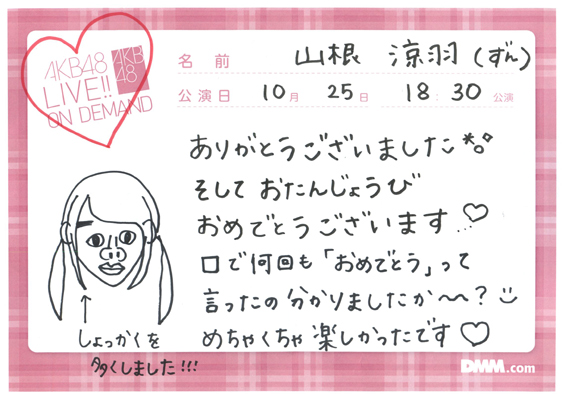 AKB48
LIVE!!
ON DEMAND
AKB
48
名前 山根 涼羽(ずん)
公演日 10月 25日 18:30 公演
ありがとうございました
そして おたんじょうび
おめでとうございます♡
口で何回も「おめでとう」って
言ったの分かりましたか〜〜?
めちゃくちゃ楽しかったです♡
↑
しょっかくを
多くしました!!!
DMM.com